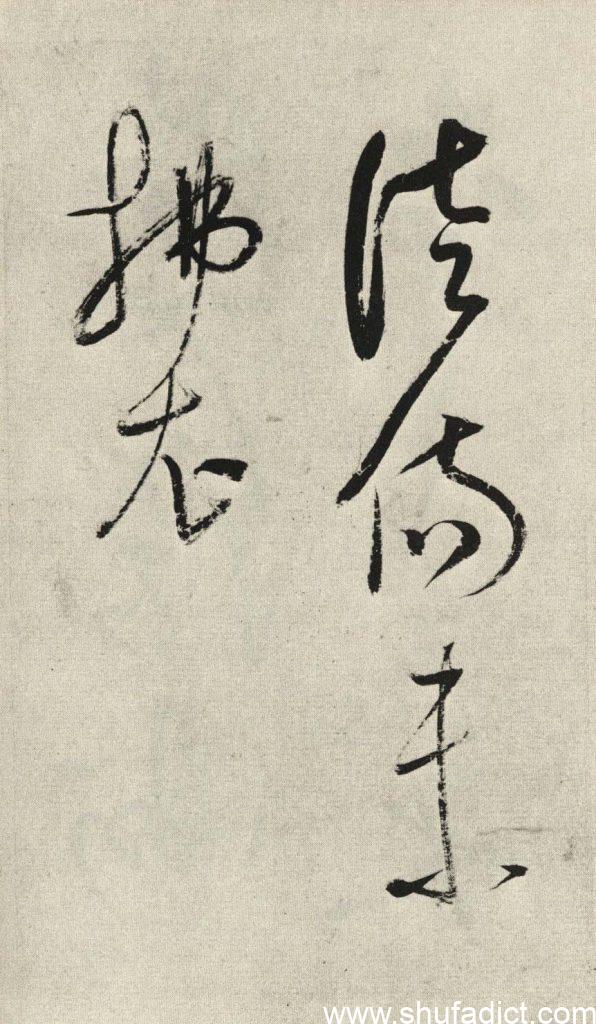 徒傷未
拂衣
www.shufadict.com